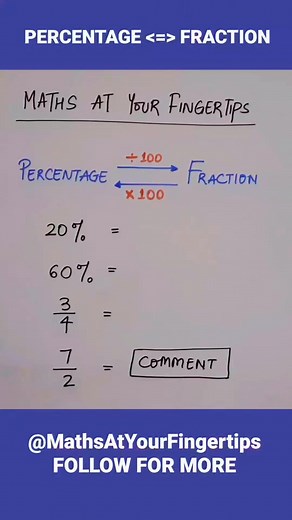 PERCENTAGE <=> FRACTION
MATHS AT YOUR FINGERTIPS
÷100
PERCENTAGE FRACTION
×100
20% =
60% =
3/4 =
7/2 = COMMENT
@MathsAtYourFingertips
FOLLOW FOR MORE